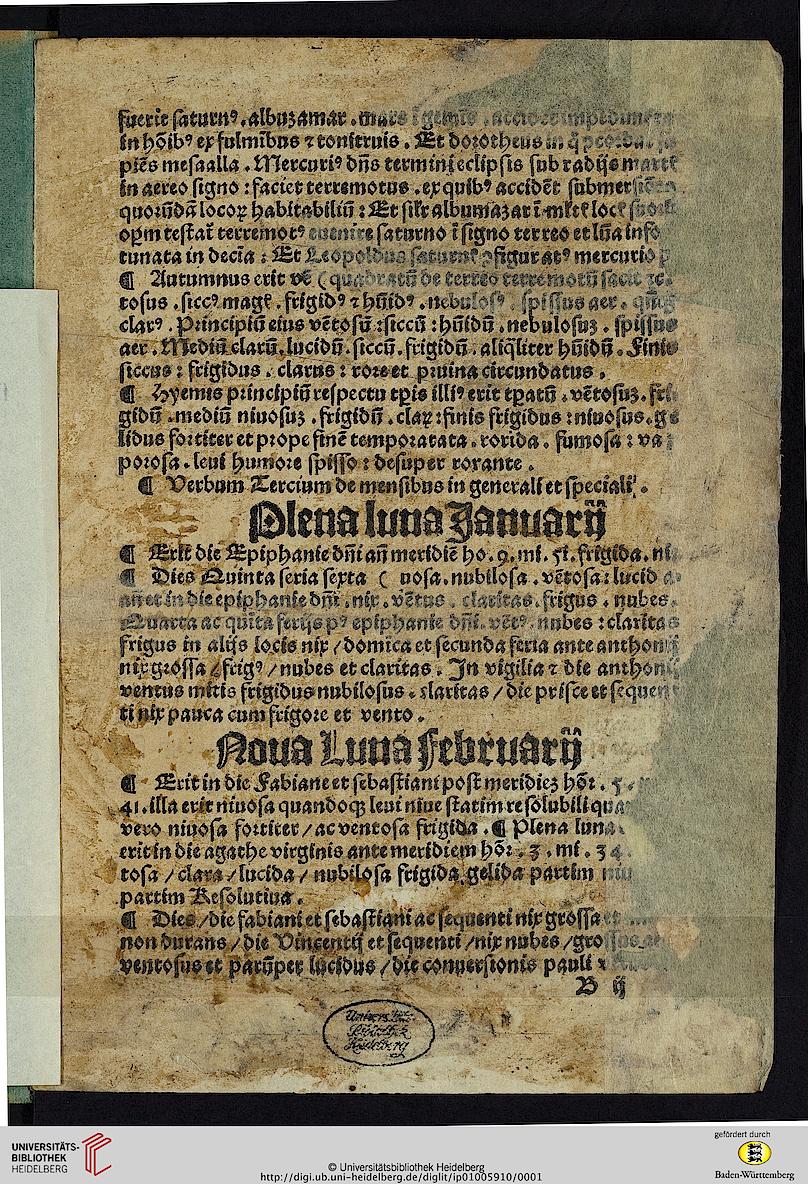 fuerit saturnꝰ. albuzamar. mars ī geminis. accidēt
in hōibꝰ ex fulminibus ⁊ tonitruis. Et dorotheus in
p̄tes mesaalla. Mercuriꝰ dn̄s termini eclipsis sub radijs martꝭ
in aereo signo : faciet terremotus. ex quibꝰ accidēt submersiōes
quorūdā locoꝝ habitabiliū : Et sil'r albumazar ī loc
terremotꝰ euenire saturno ī signo terreo et lūa info
tunata in decīa : Et Leopoldus ꝯfiguratꝰ mercurio
¶ Autumnus erit vē ( quadratū de terreo terremotū facit ⁊c.
tosus. siccꝰ magꝭ. frigidꝰ ⁊ hūidꝰ. nebulosꝰ. spissus aer.
clarꝰ. Principiū eius vētosū : siccū : hūidū. nebulosuꝫ. spissus
aer. Mediū clarū. lucidū. siccū. frigidū. aliq̄liter hūidū. Finis
siccus : frigidus. clarus : rore et pruina circundatus.
¶ Hyemis principiū respectu tp̄is illiꝰ erit tp̄atū. vētosuꝫ. fri
gidū. mediū niuosuꝫ. frigidū. claꝝ : finis frigidus : niuosus. ge
lidus fortiter et prope finē temporatata. rorida. fumosa : va
porosa. leui humore spisso : desuper rorante.
¶ Verbum Tercium de mensibus in generali et speciali.
Plena luna Januarij
¶ Erit die Epiphanie dn̄i an̄ meridiē ho. 9. mi. 51. frigida. ni
¶ Dies Quinta feria sexta ( uosa. nubilosa. vētosa : lucid a.
an̄ et in die epiphanie dn̄i. nix. vētus. claritas. frigus. nubes.
Quarta ac quīta ferijs pꝰ epiphanie dn̄i. vētꝰ. nubes : claritas
frigus in alijs locis nix / domīca et secunda feria ante anthonij
nix grossa / frigꝰ / nubes et claritas. In vigilia ⁊ die anthonij
ventus mitis frigidus nubilosus. claritas / die prisce et sequen
ti nix pauca cum frigore et vento.
Noua Luna Februarij
¶ Erit in die Fabiane et sebastiani post meridieꝫ hōr. 5.
41. illa erit niuosa quandoqꝫ leui niue statim resolubili
vero niuosa fortiter / ac ventosa frigida. ¶ Plena luna
erit in die agathe virginis ante meridiem hōr. 3. mi. 34.
tosa / clara / lucida / nubilosa frigida gelida partim
partim Resolutiua.
¶ Dies / die fabiani et sebastiani ac sequenti nix grossa
non durans / die Vincentij et sequenti / nix nubes /
ventosus et parūper lucidus / die conuersionis pauli
B ij
Univers.
Bibliothek
Heidelberg
UNIVERSITÄTS-
BIBLIOTHEK
HEIDELBERG
© Universitätsbibliothek Heidelberg
http://digi.ub.uni-heidelberg.de/diglit/ip01005910/0001
gefördert durch
Baden-Württemberg